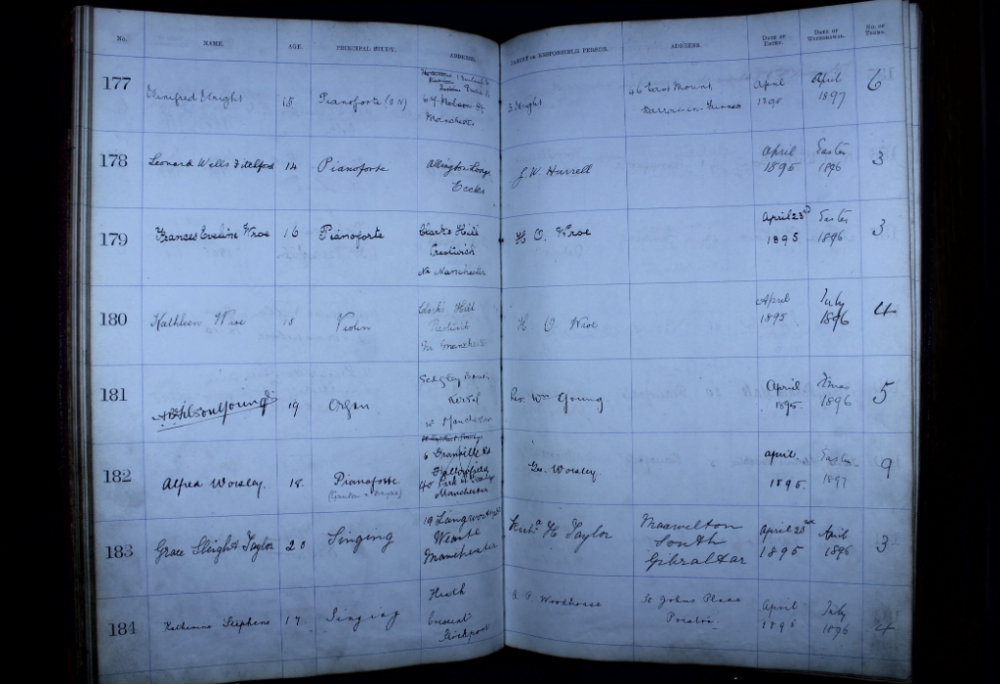 No. NAME. AGE. PRINCIPAL STUDY. ADDRESS. PARENT or RESPONSIBLE PERSON. ADDRESS. DATE OF ENTRY. DATE OF WITHDRAWAL. NO. OF TERMS.
177 Winifred 15 Pianoforte April 1895 April 1897 6
Manchester
178 Leonard Wells 14 Pianoforte Lodge J. W. Harrell April 1895 Easter 1896 3
Eccles
179 Frances Eveline Wroe 16 Pianoforte Clarks Hill H O. Wroe April 23rd 1895 Easter 1896 3
Prestwich
Nr Manchester
180 Kathleen Wroe 15 Violin Clarks Hill H O. Wroe April 1895 July 1896 4
Prestwich
Nr Manchester
181 Young 19 Organ Sedgley Rev. Wm Young April 1895 Xmas 1896 5
Kersal
Manchester
182 Alfred Worsley. 18. Pianoforte 6 Granville Rd Geo. Worsley. April 1895. Easter 1897 9
Fallowfield
Manchester
183 Grace Sleight Taylor Singing 19 H Taylor Maxwelton April 23rd 1895 April 1896 3
Manchester South
Gibraltar
184 Katherine Stephens 17 Singing Heath Woodhouse St Johns Place April 1895 July 1896 4
Crescent Preston.
Stockport